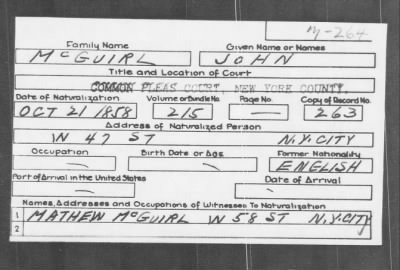 M-264
Family Name Given Name or Names
McGUIRL JOHN
Title and Location of Court
COMMON PLEAS COURT, NEW YORK COUNTY.
Date of Naturalization Volume or Bundle No. Page No. Copy of Record No.
OCT 21 1858 215 — 263
Address of Naturalized Person
W 47 ST N.Y.CITY
Occupation Birth Date or Age Former Nationality
— — ENGLISH
Port of Arrival in the United States Date of Arrival
— —
Names, Addresses and Occupations of Witnesses To Naturalization
1 MATHEW McGUIRL W 58 ST N.Y.CITY
2